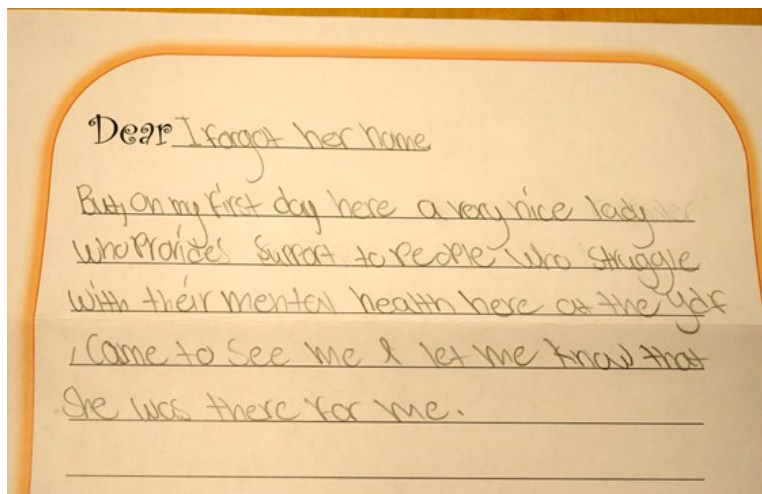 Dear I forgot her name
But, on my first day here a very nice lady
who provides support to people who struggle
with their mental health here at the ydf
, came to see me & let me know that
she was there for me.